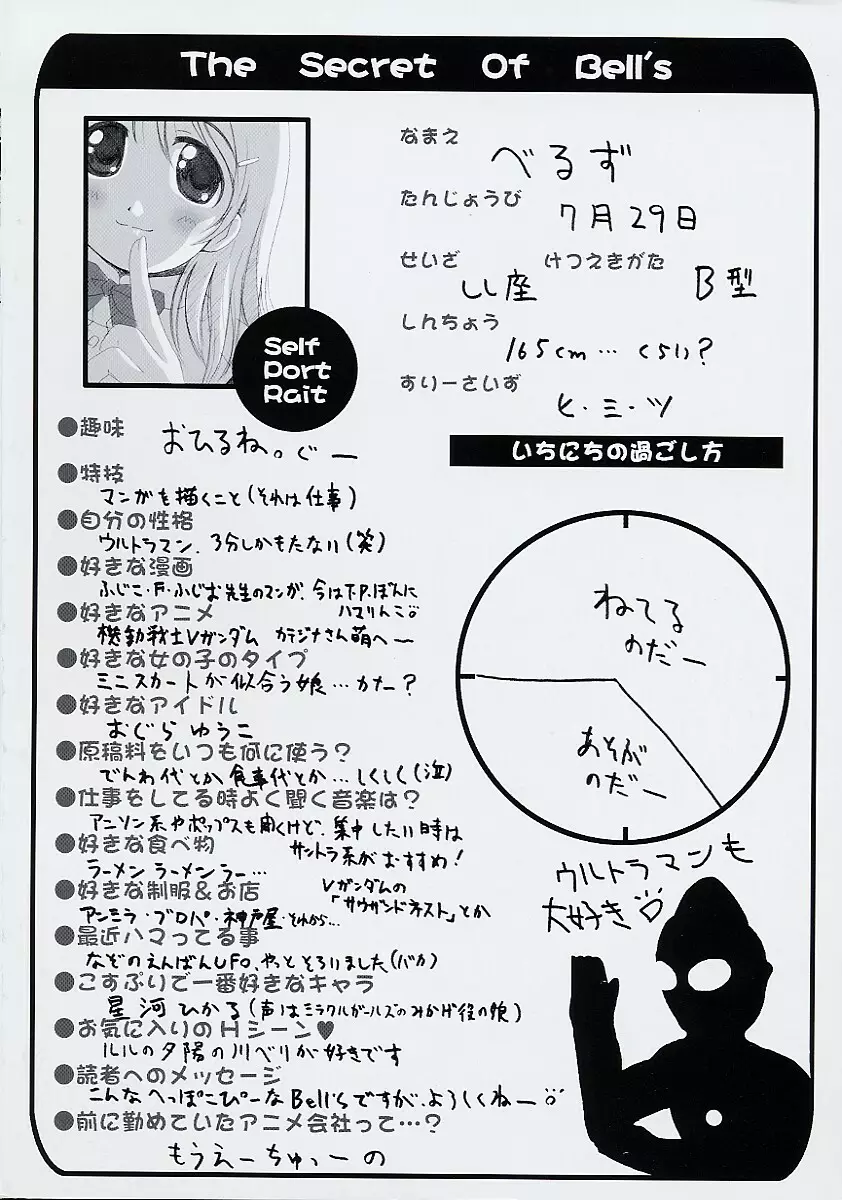 The Secret Of Bell's
なまえ
べるず
たんじょうび
7月29日
せいざ
しし座
けつえきがた
B型
しんちょう
165cm…くらい?
すりーさいず
ヒ・ミ・ツ
Self
Port
Rait
●趣味
おひるね。ぐー
●特技
マンガを描くこと(それは仕事)
●自分の性格
ウルトラマン、3分しかもたない(笑)
●好きな漫画
ふじこ・F・ふじお先生のマンガ、今はT.P.ぼんに
ハマりんこ
●好きなアニメ
機動戦士Vガンダム カテジナさん萌へー
●好きな女の子のタイプ
ミニスカートが似合う娘…かな?
●好きなアイドル
おぐら ゆうこ
●原稿料をいつも何に使う?
でんわ代とか食事代とか…しくしく(泣)
●仕事をしてる時よく聞く音楽は?
アニソン系やポップスも聞くけど、集中したい時は
サントラ系がおすすめ!
Vガンダムの
「サウザンドネスト」とか
●好きな食べ物
ラーメンラーメンラー…
●好きな制服&お店
アンミラ・ブロパ・神戸屋・それから…
●最近ハマってる事
なぞのえんばんUFO、やっとそろいました(バカ)
●こすぷりで一番好きなキャラ
星河ひかる(声はミラクルガールズのみかげ役の娘)
●お気に入りのHシーン♥
ルルの夕陽の川べりが好きです
●読者へのメッセージ
こんなへっぽこぴーなBell'sですが、よろしくねー
●前に勤めていたアニメ会社って…?
もうえーちゅーの
いちにちの過ごし方
ねてる
のだー
あそぶ
のだー
ウルトラマンも
大好き♡